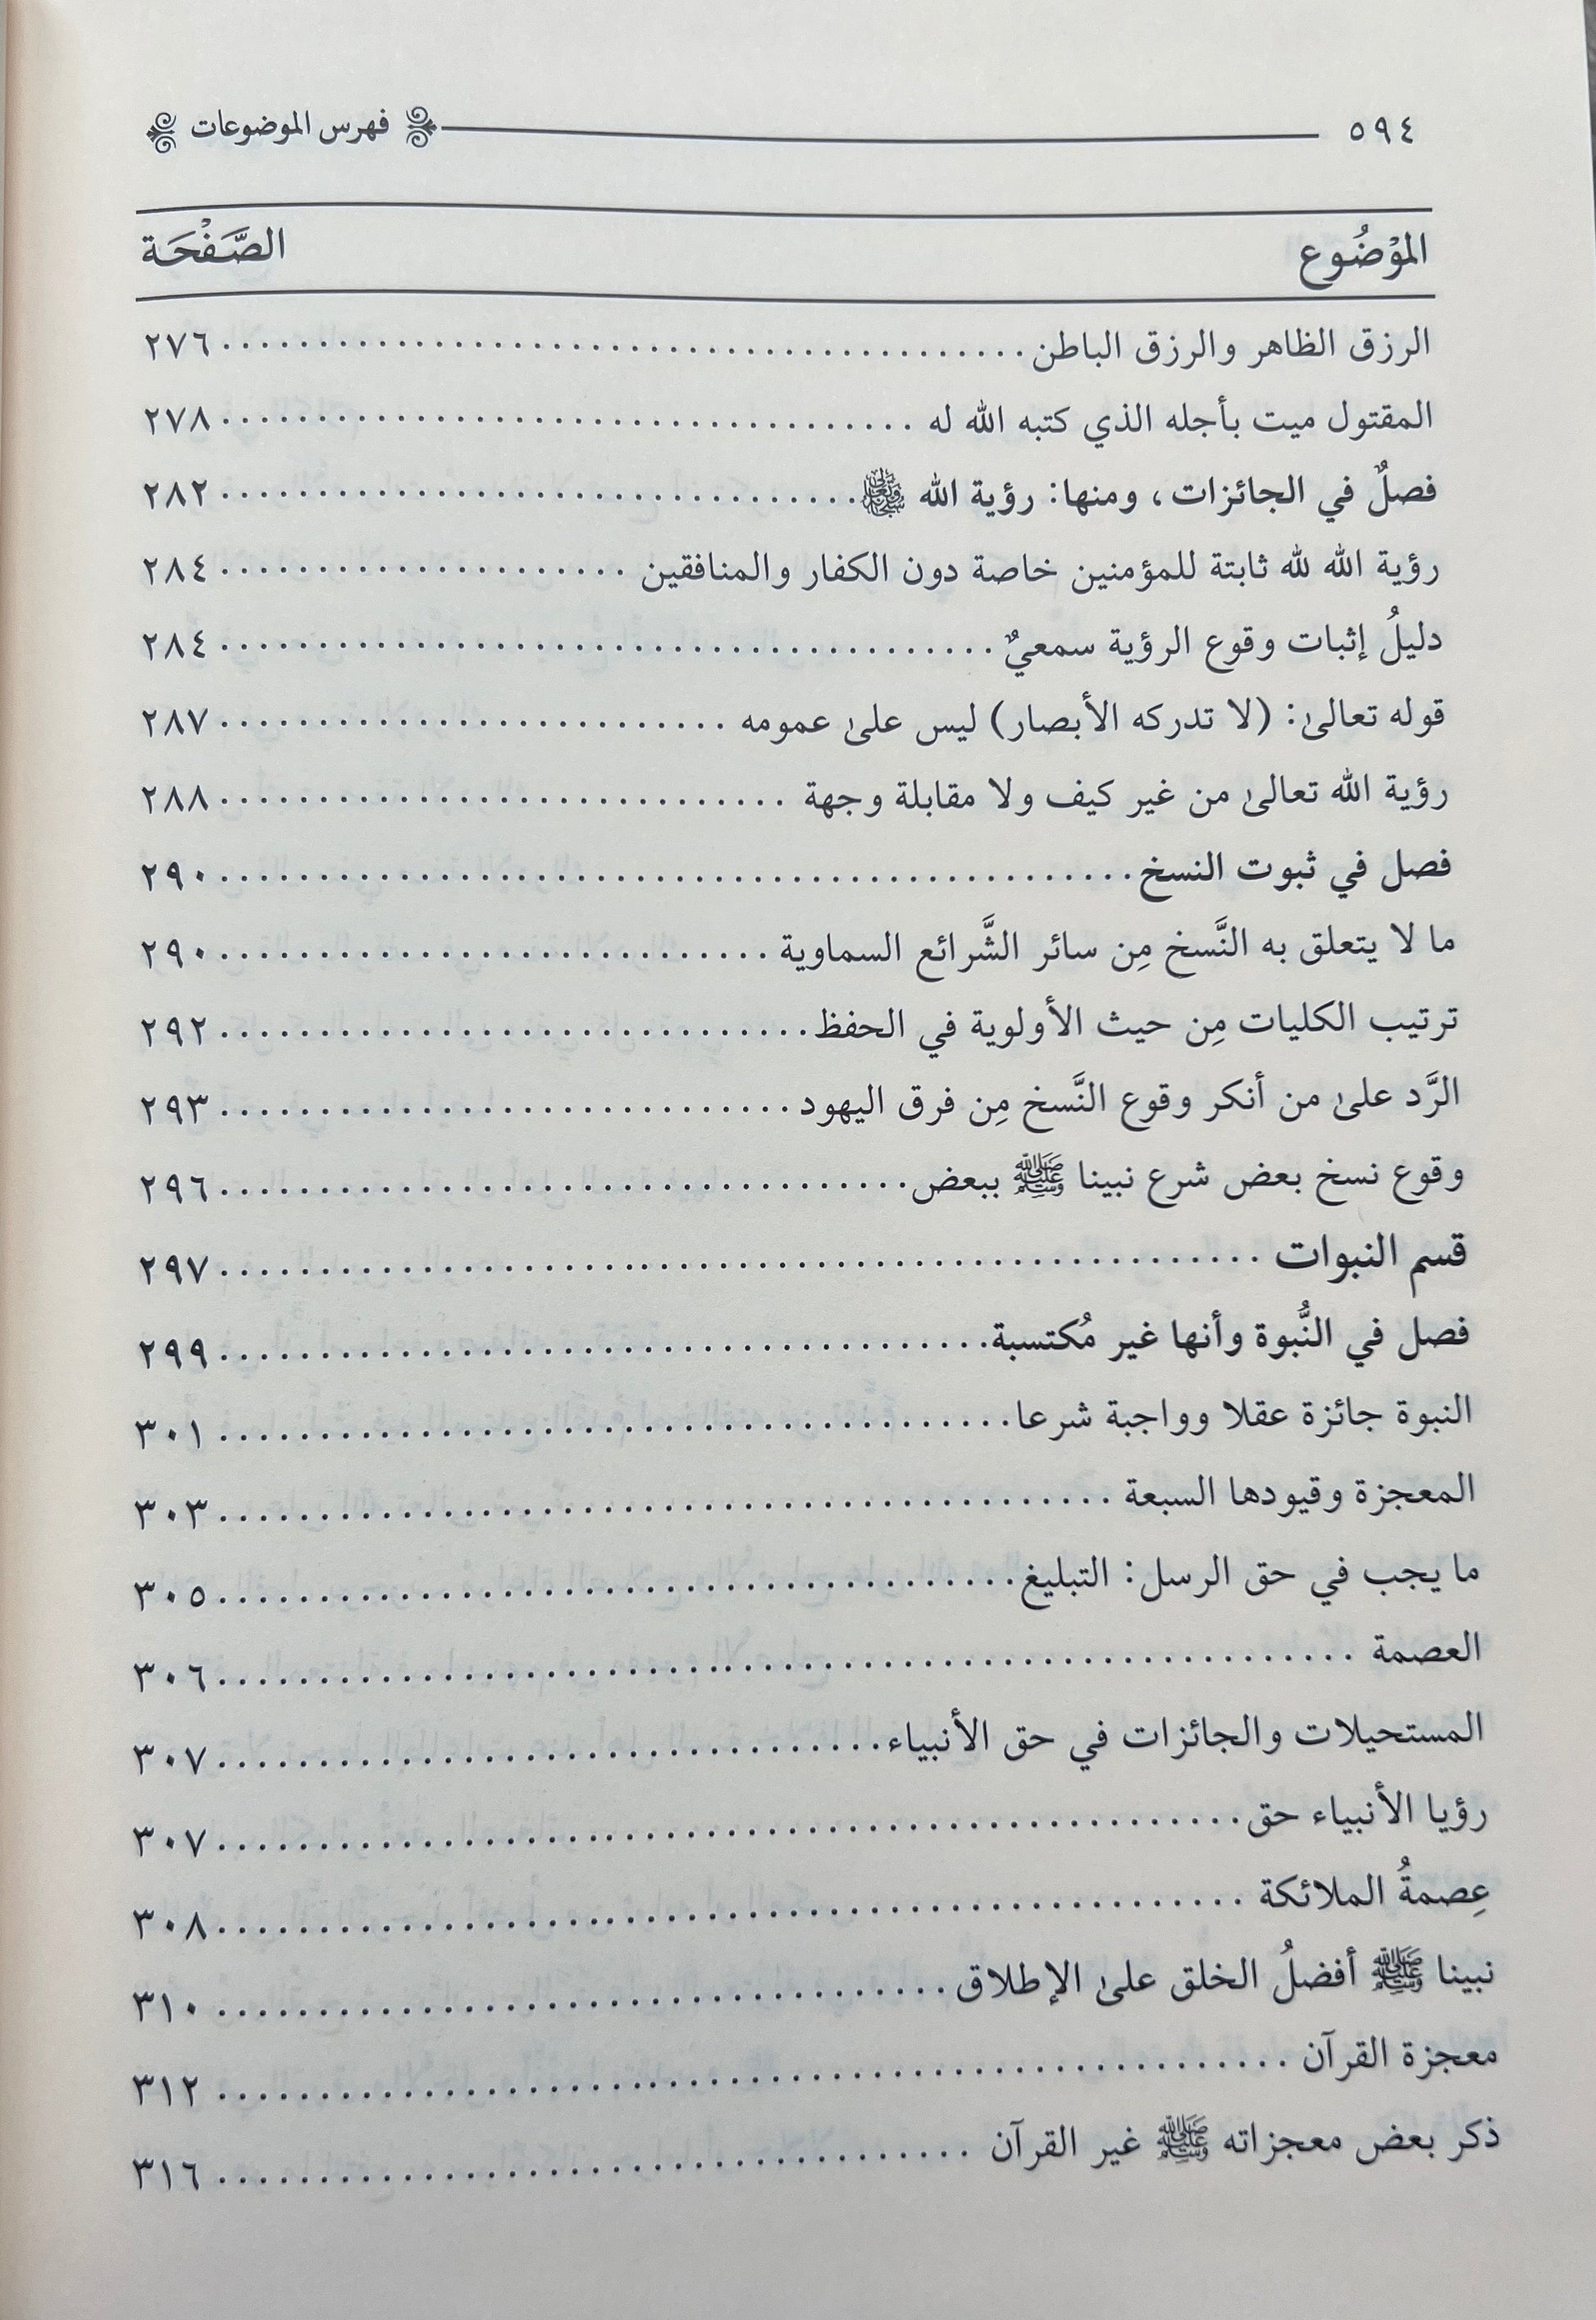 ٥٩٤ فهرس الموضوعات
الموْضُوع الصَّفْحَة
الرزق الظاهر والرزق الباطن ٢٧٦
المقتول ميت بأجله الذي كتبه الله له ٢٧٨
فصلٌ في الجائزات، ومنها: رؤية الله ٢٨٢
رؤية الله لله ثابتة للمؤمنين خاصة دون الكفار والمنافقين ٢٨٤
دليلُ إثبات وقوع الرؤية سمعيٌ ٢٨٤
قوله تعالىٰ: (لا تدركه الأبصار) ليس علىٰ عمومه ٢٨٧
رؤية الله تعالىٰ من غير كيف ولا مقابلة وجهة ٢٨٨
فصل في ثبوت النسخ ٢٩٠
ما لا يتعلق به النَّسخ مِن سائر الشَّرائع السماوية ٢٩٠
ترتيب الكليات مِن حيث الأولوية في الحفظ ٢٩٢
الرَّد علىٰ من أنكر وقوع النَّسخ مِن فرق اليهود ٢٩٣
وقوع نسخ بعض شرع نبينا ﷺ ببعض ٢٩٦
قسم النبوات ٢٩٧
فصل في النُّبوة وأنها غير مُكتسبة ٢٩٩
النبوة جائزة عقلا وواجبة شرعا ٣٠١
المعجزة وقيودها السبعة ٣٠٣
ما يجب في حق الرسل: التبليغ ٣٠٥
العصمة ٣٠٦
المستحيلات والجائزات في حق الأنبياء ٣٠٧
رؤيا الأنبياء حق ٣٠٧
عِصمةُ الملائكة ٣٠٨
نبينا ﷺ أفضلُ الخلق علىٰ الإطلاق ٣١٠
معجزة القرآن ٣١٢
ذكر بعض معجزاته ﷺ غير القرآن ٣١٦